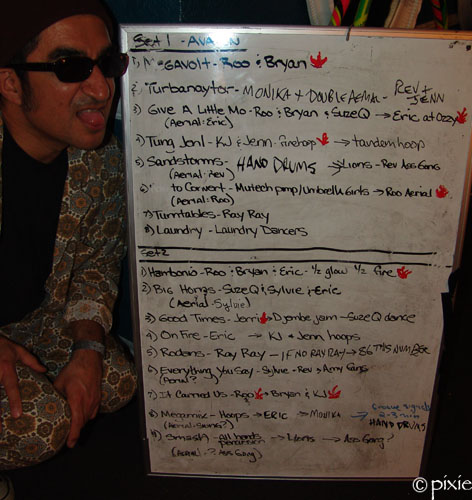 Set 1 - AVALON
1) MEGAVOLT - Roo & Bryan
2) Turbanaytor - MONIKA + DOUBLE AEMAL - REV + JENN
3) Give A Little Mo - Roo & Bryan & SuzeQ → Eric at Ozzy
(Aerial: Eric)
4) Tung Jonl - KJ & Jenn - firehoop → tandemhoop
5) Sandstorms - HAND DRUMS → Lions - Rev Ass Gang
(Aerial:
to Convert - Mutech pimp/Umbrella Girls → Roo Aerial
(Aerial: Roo)
7) Turntables - Ray Ray
8) Laundry - Laundry Dancers
Set 2
1) Hanbario - Roo & Bryan & Eric - 1/2 glow 1/2 fire
2) Big Horns - SuzeQ & Sylvie & Eric
(Aerial - Sylvie)
3) Good Times - Jenni → Djembe jam - SuzeQ dance
4) On Fire - Eric → KJ & Jenn hoops
5) Rodens - Ray Ray - IF NO RAY RAY → 86 THIS NUMBER
6) Everything You Say - Sylvie - Rev → Army Gang
7) It Carried Us - Roo & Bryan & KJ
8) Megamix - Hoops → ERIC → MONIKA →
2-3 min
HAND DRUMS
9) Smash - All hands percussion → Lions → Ass Gang?
(Aerial - ? Ass Gang)
© pixie